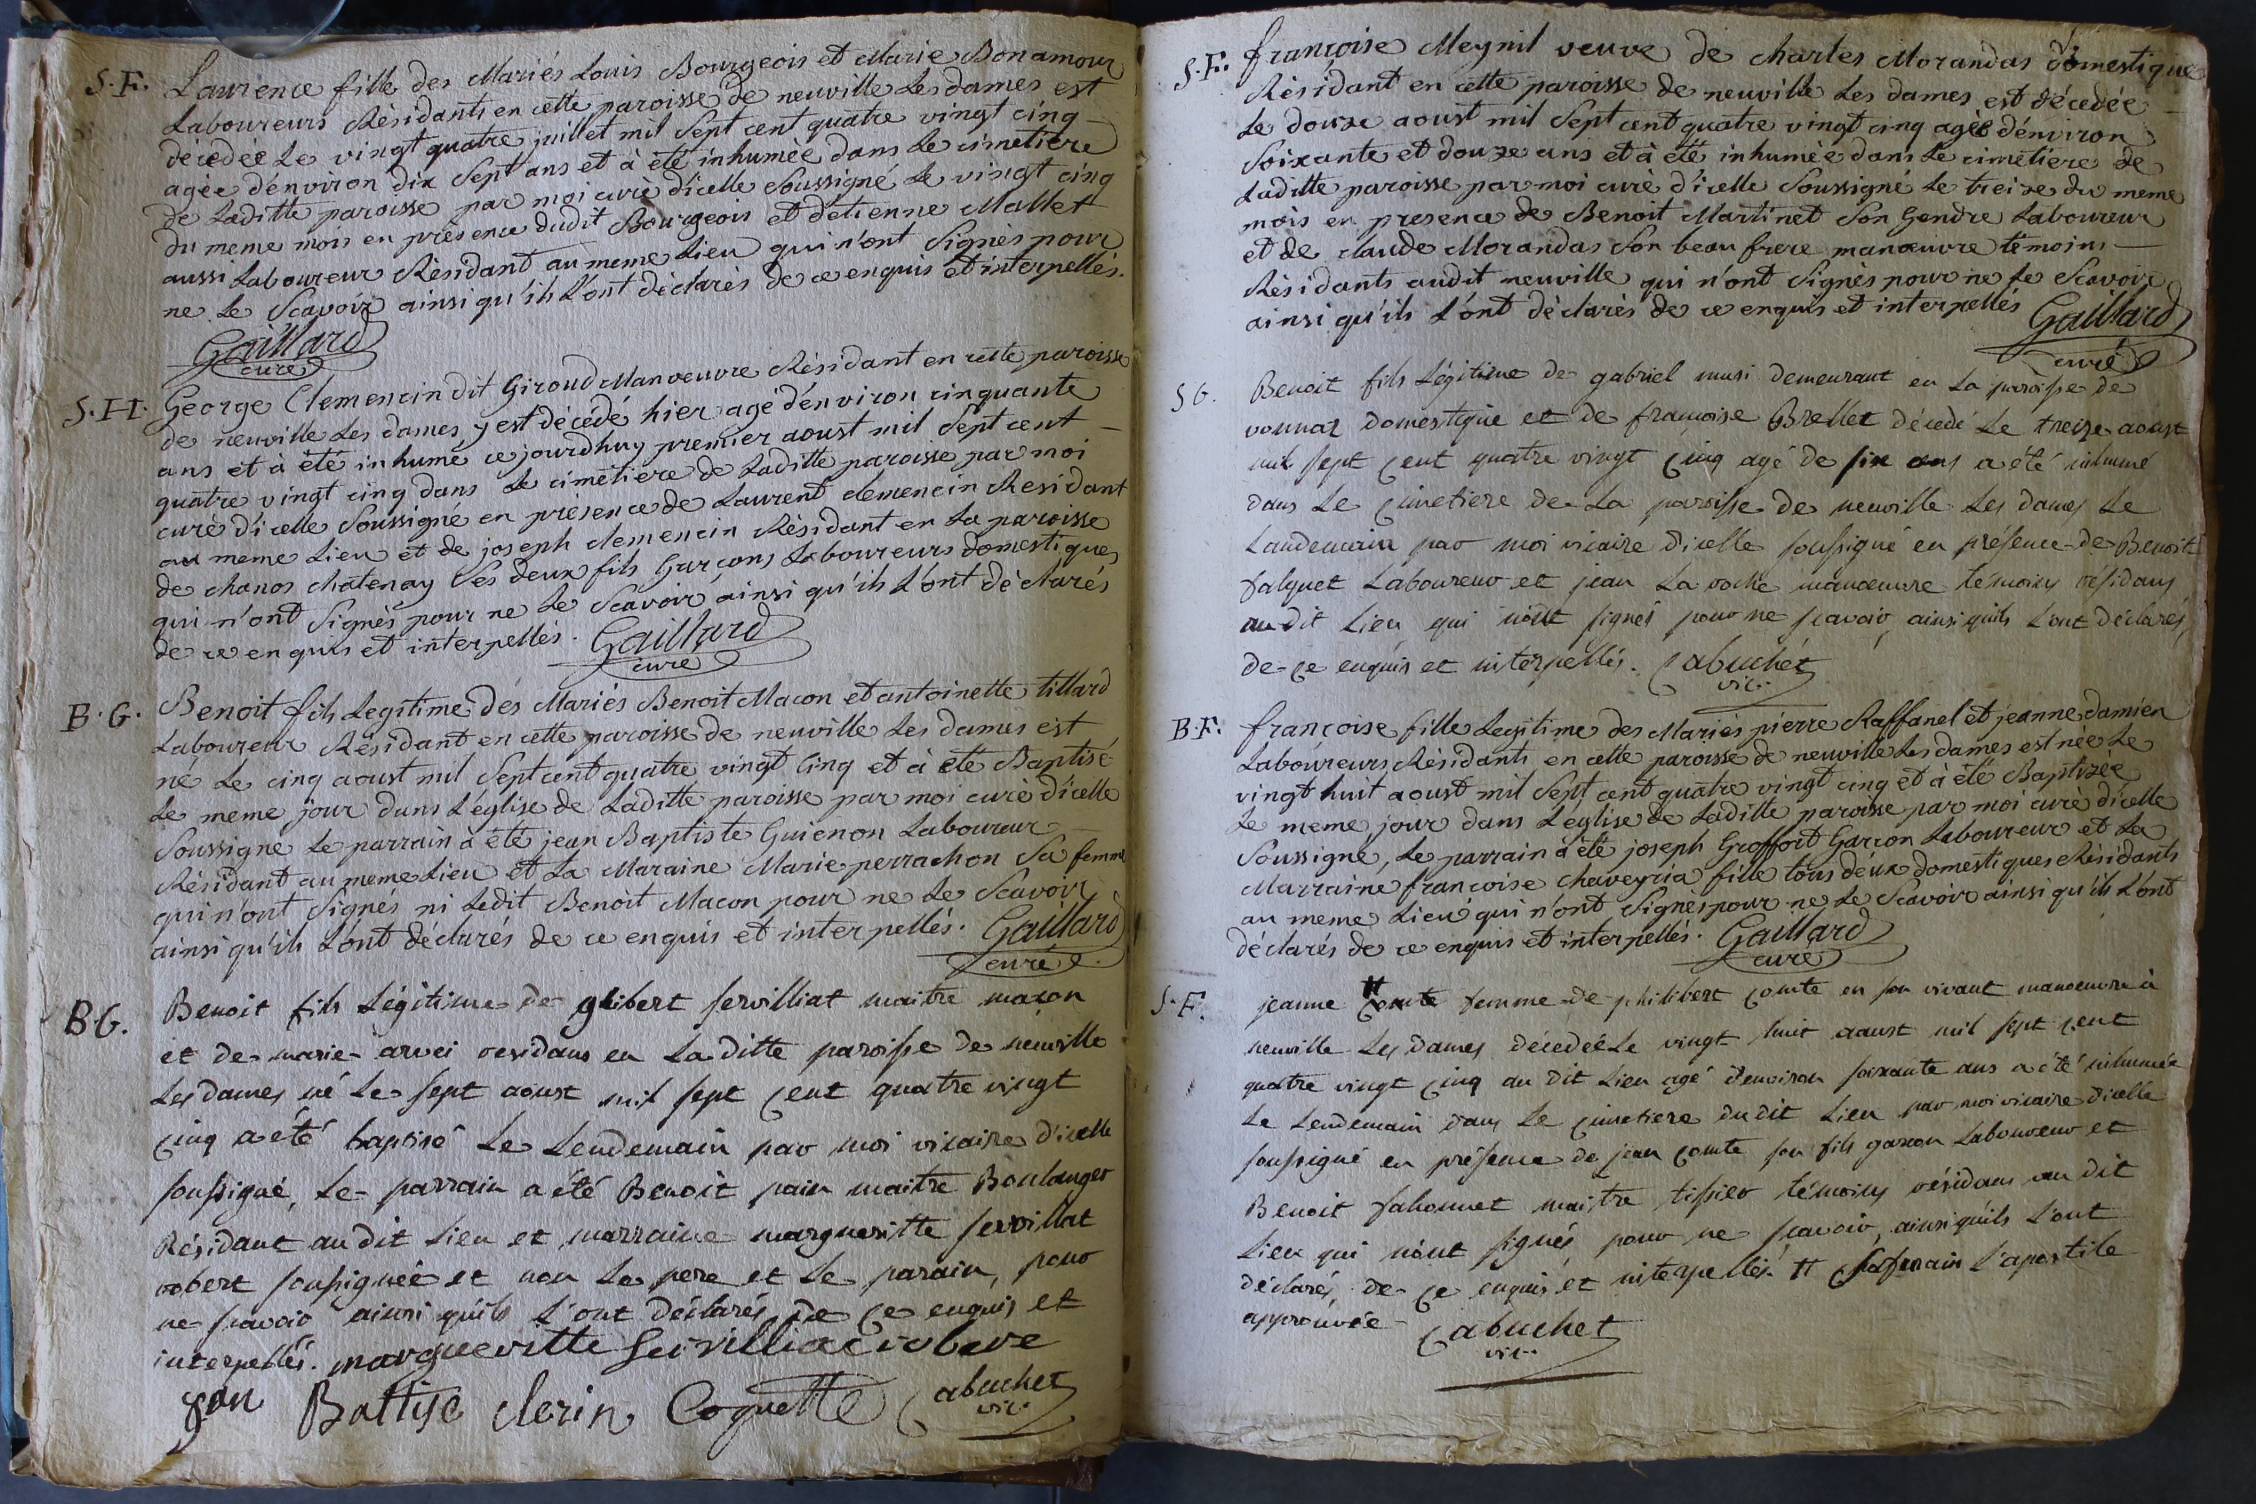 S. F. Laurence fille des Mariés Louis Bourgeois et Marie Bonamour
Laboureurs Résidants en cette paroisse de neuville Les dames est
décedée Le vingt quatre juillet mil Sept cent quatre vingt cinq
agée d'énviron dix Sept ans et à été inhumée dans Le cimetiere
de Laditte paroisse par moi curé d'icelle Soussigné Le vingt cinq
du meme mois en présence dudit Bourgeois et détienne Mallet
aussi Laboureur Résidant au meme Lieu qui n'ont Signés pour
ne Le Scavoir ainsi qu'ils L'ont déclarés de ce enquis et interpellés.
Gaillard
curé
S. H. George Clemencin dit Giroud Manoeuvre Résidant en cette paroisse
de neuville Les dames y est décédé hier agé d'énviron cinquante
ans et à été inhumé ce jourdhuy premier aoust mil Sept cent
quatre vingt cinq dans Le cimetiere de Laditte paroisse par moi
curé d'icelle Soussigné en présence de Laurent clemencin Residant
au meme Lieu et de joseph clemencin Résidant en La paroisse
de chanos chatenay Ses deux fils Garçons Laboureurs domestiques
qui n'ont Signés pour ne Le Scavoir ainsi qu'ils L'ont déclarés
de ce enquis et interpellés. Gaillard
curé
B. G. Benoit fils Legitime des Mariés Benoit Macon et antoinette tillard
Laboureur Résidant en cette paroisse de neuville Les dames est
né Le cinq aoust mil Sept cent quatre vingt Cinq et à été Baptisé
Le meme jour dans L'église de Laditte paroisse par moi curé d'icelle
Soussigne Le parrain à été jean Baptiste Guienon Laboureur
Résidant au meme Lieu et La Maraine Marie perrachon Sa femme
qui n'ont Signés ni Ledit Benoit Macon pour ne Le Scavoir
ainsi qu'ils L'ont déclarés de ce enquis et interpellés. Gaillard
curé
B. G. Benoit fils Légitime de glibert servilliat maitre maxon
et de marie arvei residans en La ditte paroisse de neuville
Les dames né Le sept aoust mil sept cent quatre vingt
cinq a été baptisé Le Lendemain par moi vicaire d'icelle
soussigné, Le parrain a été Benoit pain maitre Boulanger
Résidant au dit Lieu et marraine margueritte servillat
robert soussignée et non Le pere et Le parain, pour
ne scavoir ainsi quils L'ont déclarés de ce enquis et
interpellés. margueritte Servilliat
jan Battise clerin Coquette Cabuchet
vic.
S. F. françoise Meynil veuve de charles Morandas domestique
Résidant en cette paroisse de neuville Les dames est décedée
Le douze aoust mil Sept cent quatre vingt cinq agée d'énviron
Soixante et douze ans et à été inhumée dans Le cimetiere de
Laditte paroisse par moi curé d'icelle Soussigné Le treize du meme
mois en presence de Benoit Martinet Son Gendre Laboureur
et de claude Morandas Son beau frere manoeuvre témoins
Résidants audit neuville qui n'ont Signés pour ne Le Scavoir
ainsi qu'ils L'ont déclarés de ce enquis et interpellés Gaillard
curé
S G. Benoit fils Légitime de gabriel musi demeurant en La paroisse de
vonnaz domestique et de françoise Brellet décedé Le treize aoust
mil sept cent quatre vingt cinq agé de six ans a été inhumé
dans Le cimetiere de La paroisse de neuville Les dames Le
Landemain par moi vicaire d'icelle soussigné en présence de Benoit
falquet Laboureur et jean La roche manoeuvre témoins résidans
au dit Lieu qui n'ont signés pour ne scavoir ainsi quils L'ont déclarés
de ce enquis et interpellés. Cabuchet
vic.
B. F. françoise fille Legitime des Mariés pierre Raffanel et jeanne damien
Laboureurs Résidants en cette paroisse de neuville Les dames est née Le
vingt huit aoust mil Sept cent quatre vingt cinq et à été Baptizée
Le meme jour dans L'eglise de Laditte paroisse par moi curé d'icelle
Soussigné, Le parrain à été joseph Groffoit Garcon Laboureur et La
Marraine françoise chaveyria fille tous déux domestiques Résidants
au meme Lieu qui n'ont Signés pour ne Le Scavoir ainsi qu'ils L'ont
déclarés de ce enquis et interpellés. Gaillard
curé
S. F. jeanne femme de philibert comte en son vivant manoeuvre à
neuville Les dames décedée Le vingt huit aoust mil sept cent
quatre vingt cinq au dit Lieu agé d'environ soixante ans a été inhumée
Le Lendemain dans Le cimetiere du dit Lieu par moi vicaire d'icelle
soussigné en présence de jean comte son fils garson Laboureur et
Benoit fahonnet maitre tissier témoins résidans au dit
Lieu qui n'ont signés pour ne scavoir, ainsi quils L'ont
déclarés, de ce enquis et interpellés. L'apostile
approuvée Cabuchet
vic.